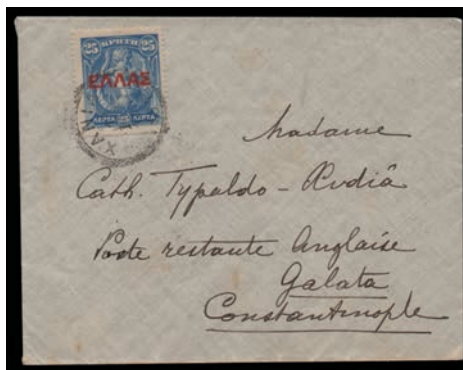 25 ΚΡΗΤΗ 25
ΕΛΛΑΣ
ΛΕΠΤΑ 25 ΛΕΠΤΑ
ΧΑΝΙ
Madame
Cath. Typaldo - 
Poste restante Anglaise
Galata
Constantinople